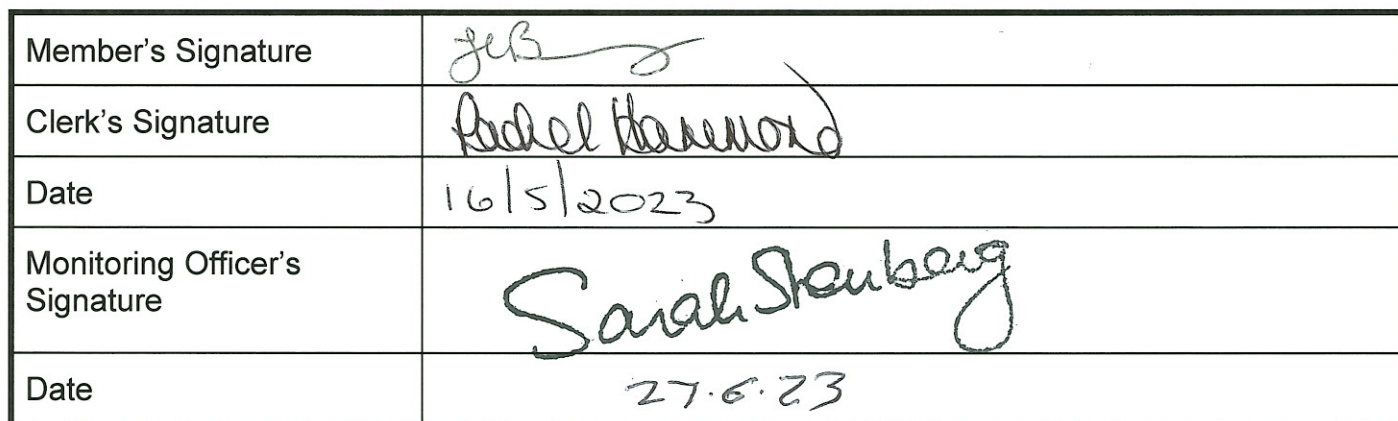 Member's Signature
Clerk's Signature Rachel Hammond
Date 16/5/2023
Monitoring Officer's
Signature Sarah Stenberg
Date 27.6.23